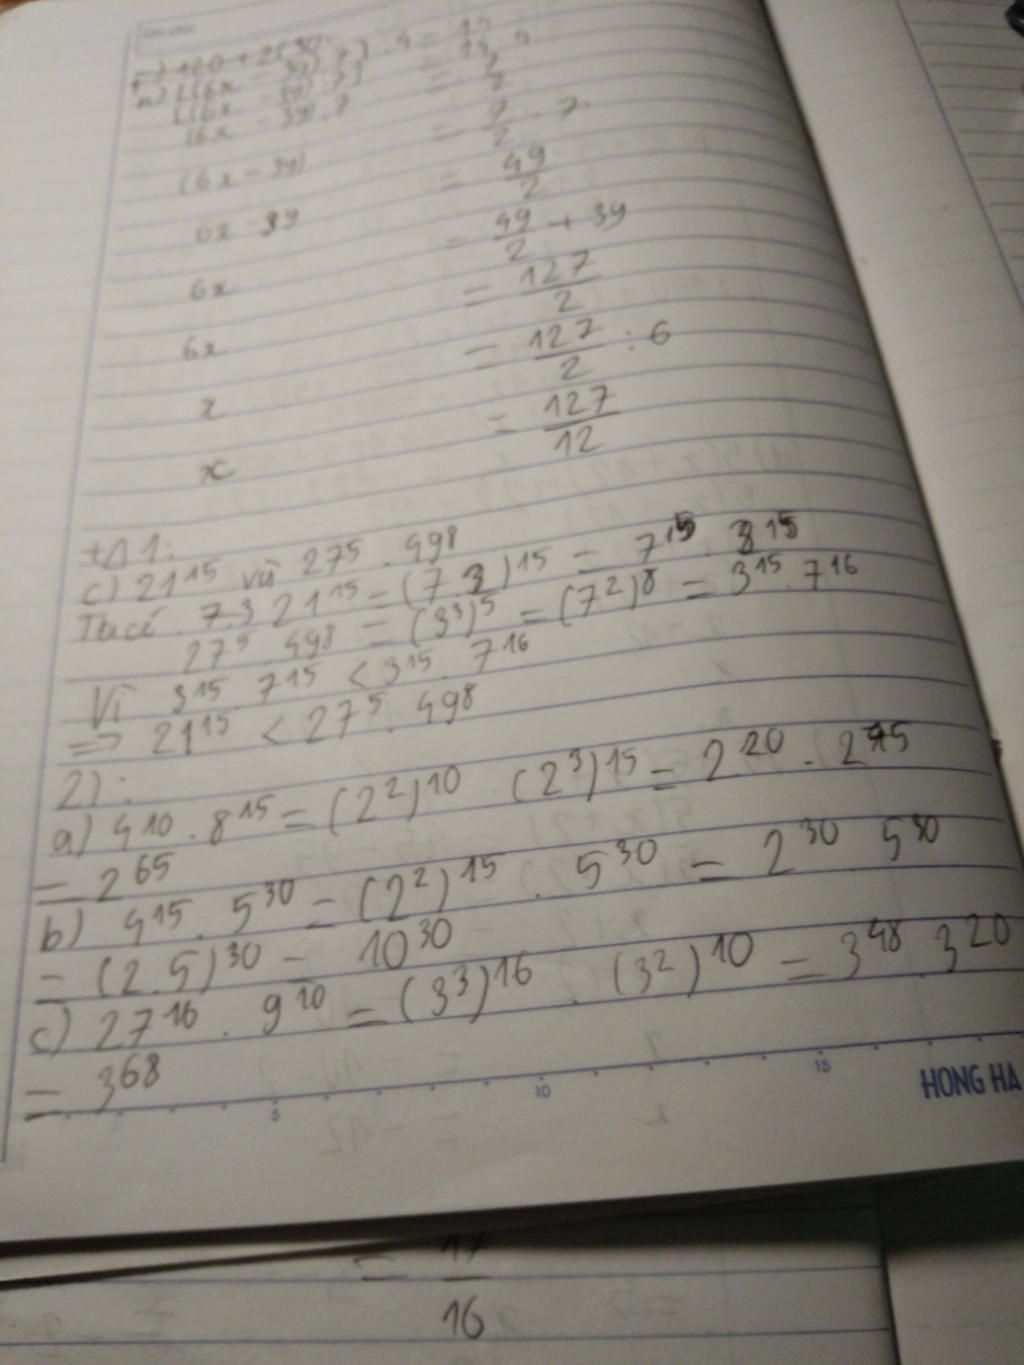 (6x - 39) = 7/2 . 7
6x - 39 = 49/2
6x = 49/2 + 39
6x = 127/2
x = 127/2 : 6
x = 127/12
+Δ 1:
c) 21^15 và 27^5 . 49^8
Tacó . 7.3 21^15 = (7.3)^15 = 7^15 . 3^15
27^5 . 49^8 = (3^3)^5 = (7^2)^8 = 3^15 . 7^16
Vì 3^15 . 7^15 < 3^15 . 7^16
=> 21^15 < 27^5 . 49^8
2) :
a) 4^10 . 8^15 = (2^2)^10 (2^3)^15 = 2^20 . 2^45
= 2^65
b) 4^15 . 5^30 = (2^2)^15 . 5^30 = 2^30 5^30
= (2.5)^30 = 10^30
c) 27^16 . 9^10 = (3^3)^16 . (3^2)^10 = 3^48 3^20
= 3^68
5 10 15 HONG HA
16